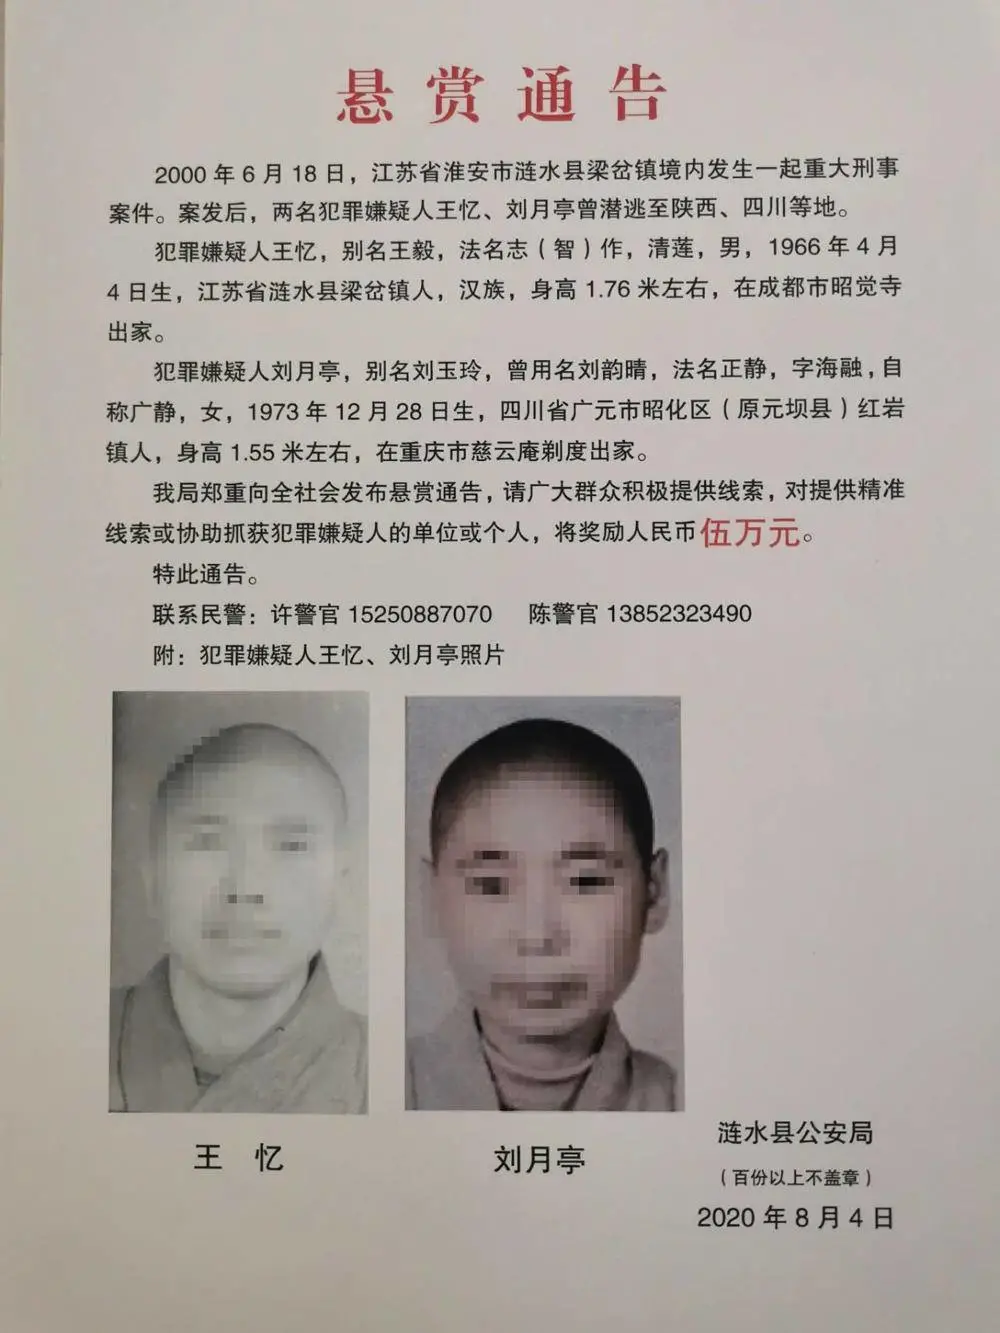 悬赏通告
2000 年 6 月 18 日，江苏省淮安市涟水县梁岔镇境内发生一起重大刑事
案件。案发后，两名犯罪嫌疑人王忆、刘月亭曾潜逃至陕西、四川等地。
犯罪嫌疑人王忆，别名王毅，法名志（智）作，清莲，男，1966 年 4 月
4 日生，江苏省涟水县梁岔镇人，汉族，身高 1.76 米左右，在成都市昭觉寺
出家。
犯罪嫌疑人刘月亭，别名刘玉玲，曾用名刘韵晴，法名正静，字海融，自
称广静，女，1973 年 12 月 28 日生，四川省广元市昭化区（原元坝县）红岩
镇人，身高 1.55 米左右，在重庆市慈云庵剃度出家。
我局郑重向全社会发布悬赏通告，请广大群众积极提供线索，对提供精准
线索或协助抓获犯罪嫌疑人的单位或个人，将奖励人民币伍万元。
特此通告。
联系民警：许警官 15250887070 陈警官 13852323490
附：犯罪嫌疑人王忆、刘月亭照片
王 忆 刘月亭
涟水县公安局
（百份以上不盖章）
2020 年 8 月 4 日